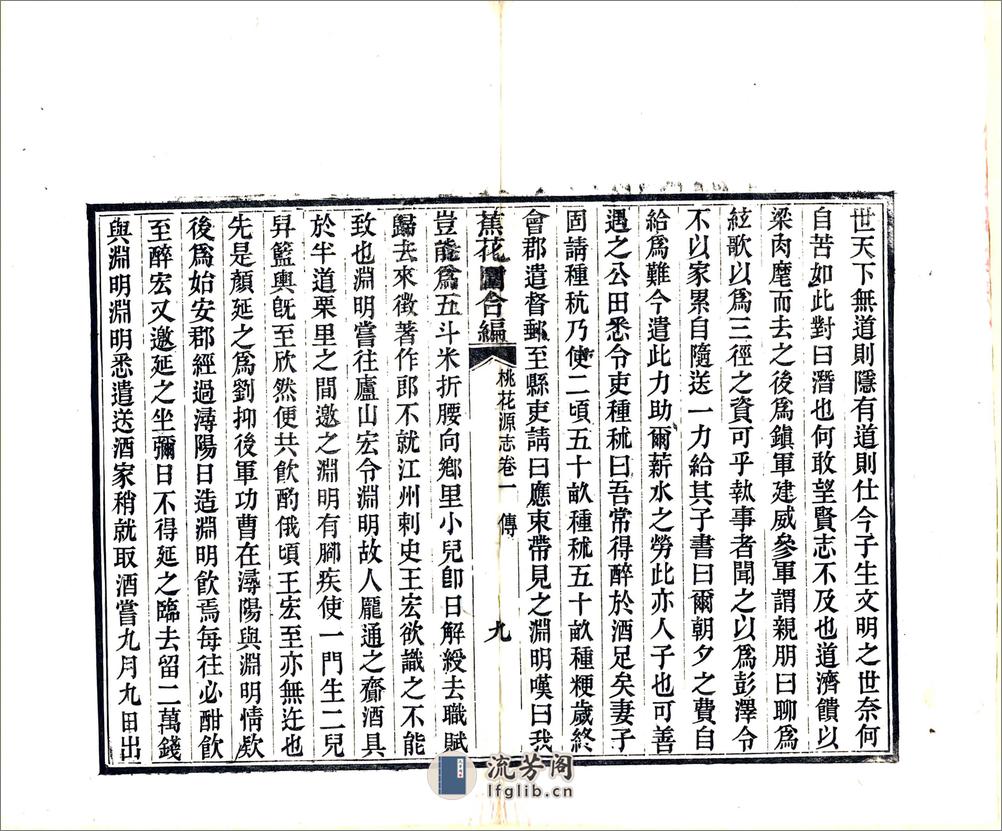 世天下無道則隱有道則仕今子生文明之世奈何
自苦如此對曰潛也何敢望賢志不及也道濟饋以
梁肉麾而去之後爲鎮軍建威參軍謂親朋曰聊爲
絃歌以爲三徑之資可乎執事者聞之以爲彭澤令
不以家累自隨送一力給其子書曰爾朝夕之費自
給爲難今遣此力助爾薪水之勞此亦人子也可善
遇之公田悉令吏種秫曰吾常得醉於酒足矣妻子
固請種秔乃使二頃五十畝種秫五十畝種粳歲終
會郡遣督郵至縣吏請曰應束帶見之淵明嘆曰我
蕉花圃合編
桃花源志卷一 傳
九
豈能爲五斗米折腰向鄉里小兒卽日解綬去職賦
歸去來徵著作郎不就江州刺史王宏欲識之不能
致也淵明嘗往廬山宏令淵明故人龐通之齎酒具
於半道栗里之間邀之淵明有腳疾使一門生二兒
昇籃輿旣至欣然便共飲酌俄頃王宏至亦無迕也
先是顏延之爲劉抑後軍功曹在潯陽與淵明情欵
後爲始安郡經過潯陽日造淵明飲焉每往必酣飲
至醉宏又邀延之坐彌日不得延之臨去留二萬錢
與淵明淵明悉遣送酒家稍就取酒嘗九月九日出
流芳阁
lfglib.cn